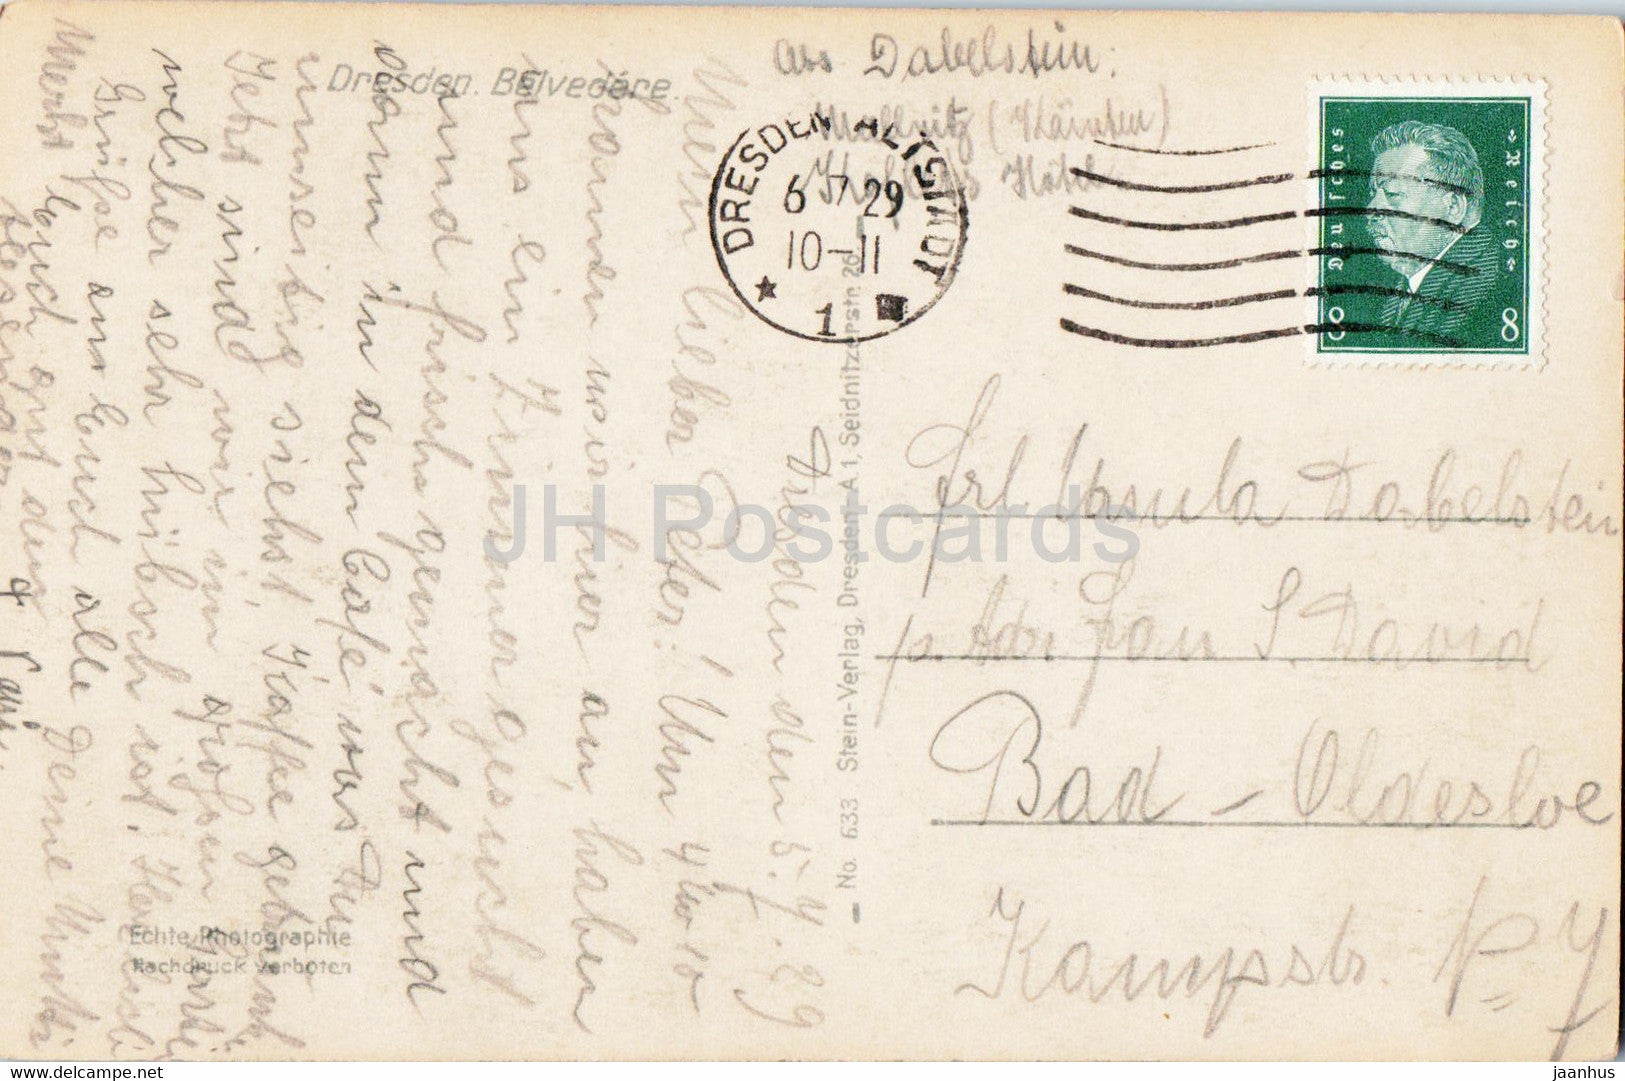 Dresden. Belvedére.
Abs Dabelstein:
Mallnitz (Kärnten)
Hotel
DRESDEN ALTSTADT
6 7 29
10-11
1
Deutsches Reich
8 8
Dresden den 5. 7. 29
Mein lieber Peter! Um 4 Uhr 10
kamen wir hier an, haben
uns ein Zimmer gesucht
und frisch gemacht und
dann in dem Café was Du
umseitig siehst, Kaffee getrunk
Jetzt sind wir im großen Garten
welcher sehr hübsch ist. Herzliche
Grüße an Euch alle Deine Mutti
Merkt Euch gut den
Absender
No. 633 Stein-Verlag, Dresden-A 1, Seidnitzerstr. 26
Frl Ursula Dabelstein
p. Adr Frau S. David
Bad-Oldesloe
Kampstr. No 7
Echte Photographie
Nachdruck verboten
JH Postcards
www.delcampe.net
jaanhus